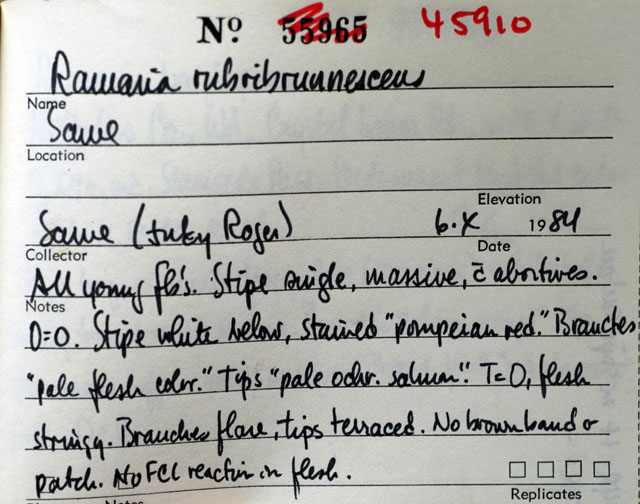 Nº 55965 45910
Ramaria rubribrunnescens
Name
Same
Location
Elevation
Same (Roger) 6.X 1984
Collector Date
All young fb's. Stipe single, massive, c̄ abortives.
Notes
O=O. Stipe white below, stained "pompeian red." Branches
"pale flesh color." Tips "pale ochr. salmon". T=O, flesh
stringy. Branches flare, tips terraced. No brown band or
patch. No FCl reaction in flesh.
Replicates
Notes